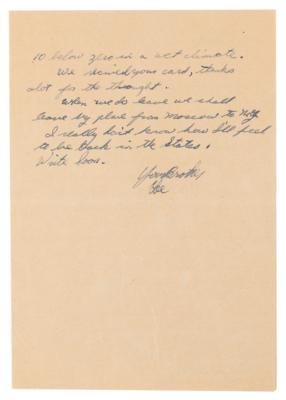 10 below zero in a wet climate.
We recived your card, thanks
alot for the thought.
When we do leave we shall
leave by plane from Moscow to
I really do'nt know how I'll feel
to be back in the States.
Write soon.
Your Brother
Lee